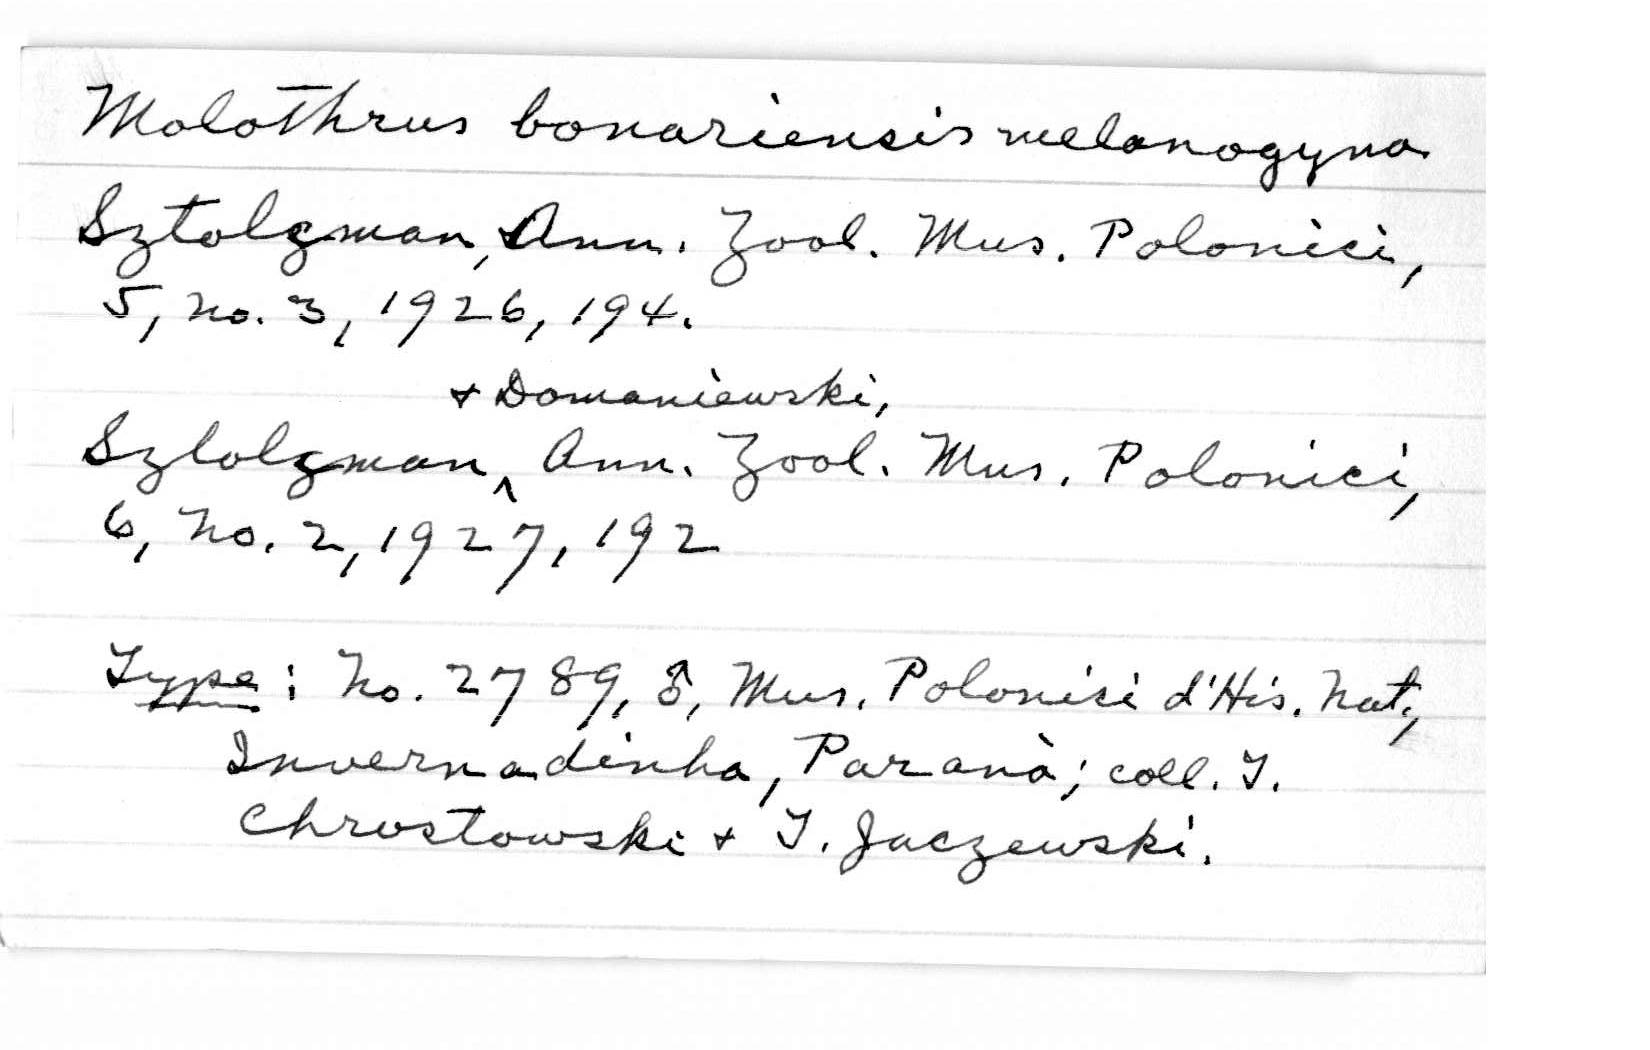 Molothrus bonariensis melanogyna
Sztolcman, Ann. Zool. Mus. Polonici,
5, no. 3, 1926, 194.
+ Domaniewski,
Sztolcman ^ Ann. Zool. Mus. Polonici,
6, No. 2, 1927, 192
Type: No. 2789, ♂, Mus. Polonici d'His. Nat.,
Invernadinha, Paranà; coll. T.
Chrostowski + T. Jaczewski.